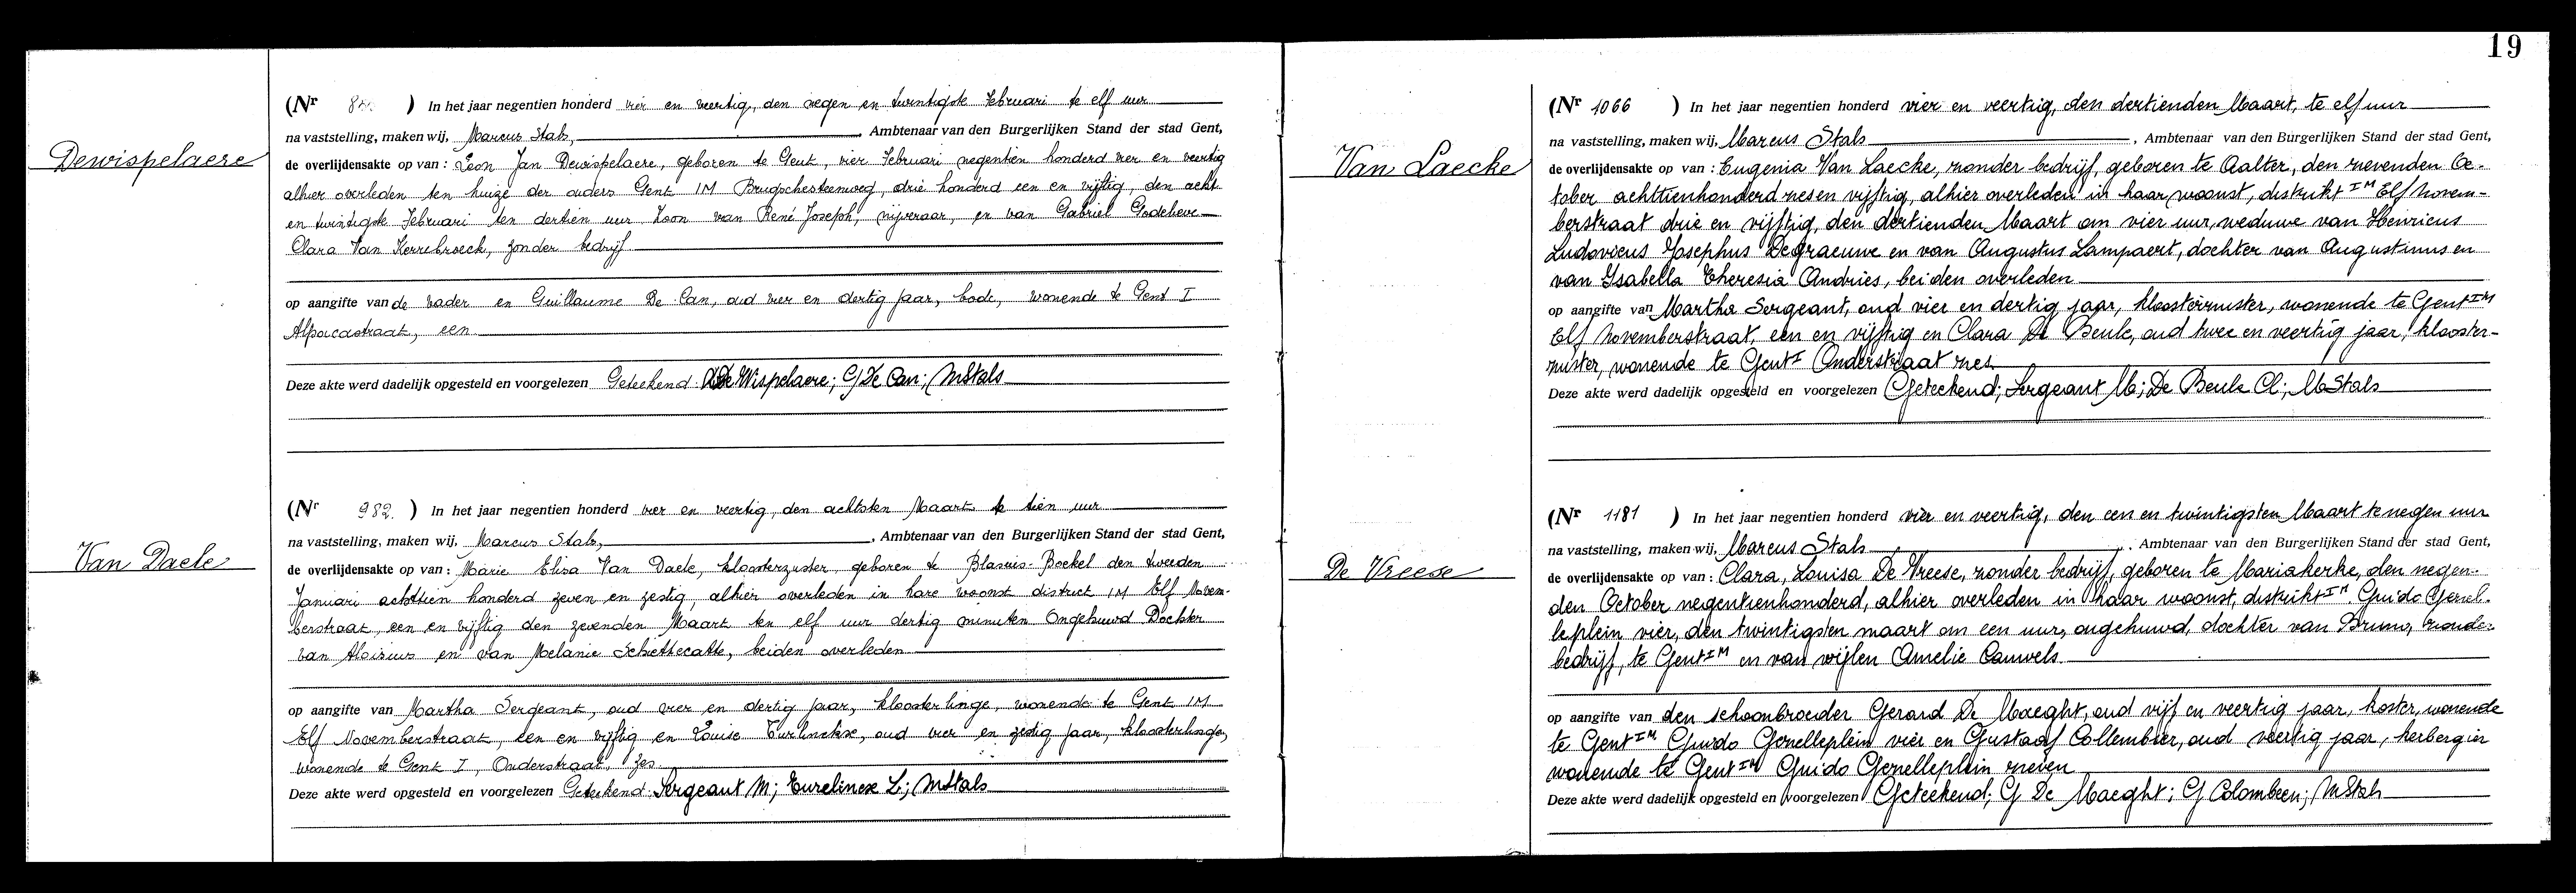 19
Dewispelaere
(Nr ) In het jaar negentien honderd vier en veertig, den negen en twintigste Februari te elf uur
na vaststelling, maken wij, Marcus Stals, Ambtenaar van den Burgerlijken Stand der stad Gent,
de overlijdensakte op van : Leon Jan Dewispelaere, geboren te Gent, vier Februari negentien honderd vier en veertig
alhier overleden ten huize der ouders Gent IM Brugschesteenweg, drie honderd een en vijftig, den acht
en twintigste Februari ten dertien uur Zoon van René Joseph, nijveraar, en van Gabriel Godelieve
Clara Van Kerrebroeck, zonder bedrijf
op aangifte van de vader en Guillaume De Can, oud vier en dertig jaar, bode, wonende te Gent I
Alpacastraat, een
Deze akte werd dadelijk opgesteld en voorgelezen Geteekend: De Wispelaere; G De Can; MStals
Van Daele
(Nr 982. ) In het jaar negentien honderd vier en veertig, den achtsten Maart te tien uur
na vaststelling, maken wij, Marcus Stals, Ambtenaar van den Burgerlijken Stand der stad Gent,
de overlijdensakte op van : Marie Elisa Van Daele, kloosterzuster, geboren te Blasius-Boekel den tweeden
Januari achttien honderd zeven en zestig, alhier overleden in hare woonst district IM Elf Novem-
berstraat, een en vijftig den zevenden Maart ten elf uur dertig minuten Ongehuwd Dochter
van Aloisius en van Melanie Schiettecatte, beiden overleden
op aangifte van Martha Sergeant, oud vier en dertig jaar, kloosterlinge, wonende te Gent IM
Elf Novemberstraat, een en vijftig en Louise Turlinckx, oud vier en zestig jaar, kloosterlinge,
wonende te Gent I, Onderstraat, zes.
Deze akte werd opgesteld en voorgelezen Geteekend: Sergeant M; Turelincx L; MStals
Van Laecke
(Nr 1066 ) In het jaar negentien honderd vier en veertig, den dertienden Maart, te elf uur
na vaststelling, maken wij, Marcus Stals, Ambtenaar van den Burgerlijken Stand der stad Gent,
de overlijdensakte op van : Eugenia Van Laecke, zonder bedrijf, geboren te Aalter, den zevenden Oc-
tober achttienhonderd zes en vijftig, alhier overleden in haar woonst, distrikt IM Elf Novem-
berstraat drie en vijftig, den dertienden Maart om vier uur, weduwe van Henricus
Ludovicus Josephus Degraeuwe en van Augustus Lampaert, dochter van Augustinus en
van Isabella Theresia Andries, beiden overleden
op aangifte van Martha Sergeant, oud vier en dertig jaar, kloosterzuster, wonende te Gent IM
Elf Novemberstraat, een en vijftig en Clara De Beule, oud twee en veertig jaar, klooster-
zuster, wonende te Gent I Onderstraat zes
Deze akte werd dadelijk opgesteld en voorgelezen Geteekend; Sergeant M; De Beule Cl; MStals
De Vreese
(Nr 1181 ) In het jaar negentien honderd vier en veertig, den een en twintigsten Maart te negen uur
na vaststelling, maken wij, Marcus Stals, Ambtenaar van den Burgerlijken Stand der stad Gent,
de overlijdensakte op van : Clara, Louisa De Vreese, zonder bedrijf, geboren te Mariakerke, den negen-
den October negentienhonderd, alhier overleden in haar woonst, distrikt IM Guido Gezel-
leplein vier, den twintigsten maart om een uur, ongehuwd, dochter van Bruno, zonder
bedrijf, te Gent IM en van wijlen Amelie Cauwels
op aangifte van den schoonbroeder Gerard De Maeght, oud vijf en veertig jaar, koster, wonende
te Gent IM Guido Gezelleplein vier en Gustaaf Collembier, oud veertig jaar, herbergier
wonende te Gent IM Guido Gezelleplein zeven
Deze akte werd dadelijk opgesteld en voorgelezen Geteekend; G De Maeght; G Colombeen; MStals